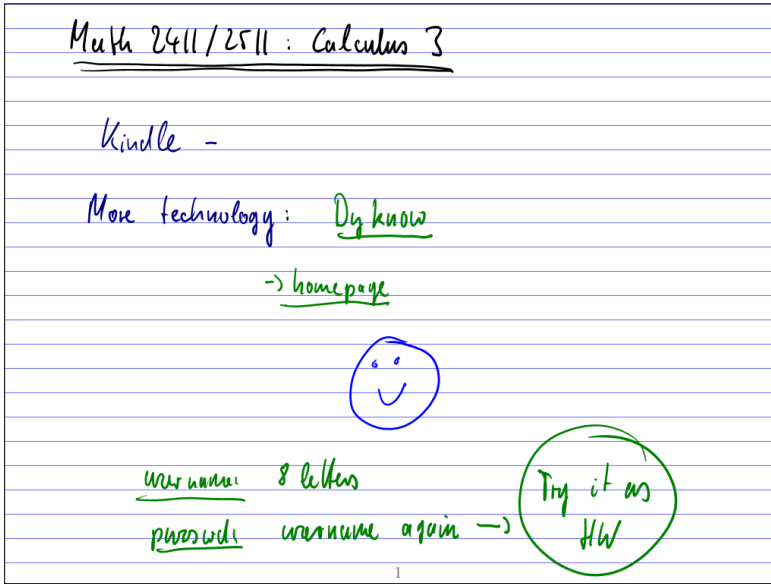 Math 2411/2511: Calculus 3
Kindle -
More technology: Dyknow
-> homepage
username: 8 letters
passwd: username again -> Try it as
HW
1